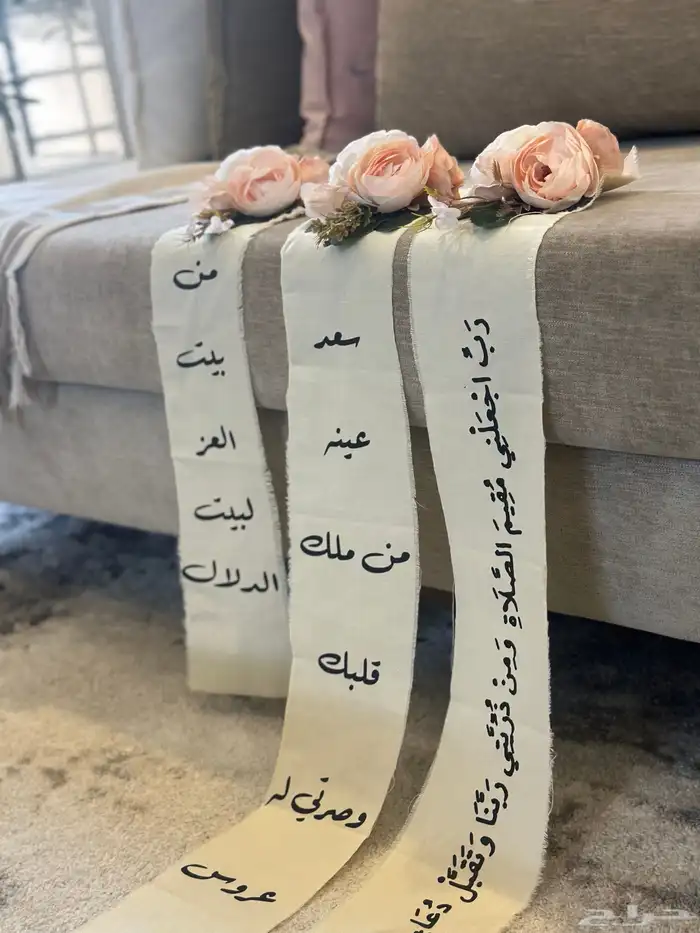 من
بيت
العز
لبيت
الدلال
سعد
عينه
من ملك
قلبك
وصرتي له
عروس
رَبِّ اجْعَلْنِي مُقِيمَ الصَّلَاةِ وَمِنْ ذُرِّيَّتِي رَبَّنَا وَتَقَبَّلْ دُعَا
حراج